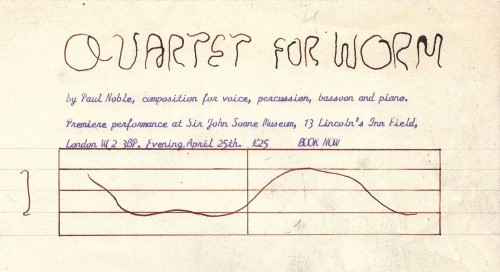 QUARTET FOR WORM
by Paul Noble, composition for voice, percussion, bassoon and piano.
Premiere performance at Sir John Soane Museum, 13 Lincoln's Inn Field,
London W 2 3BP. Evening, April 25th. £25 BOOK NOW